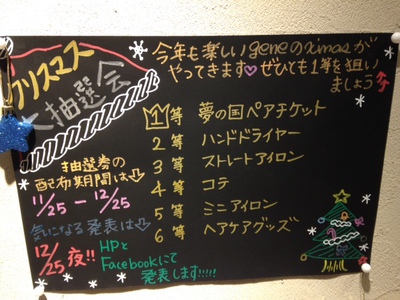 クリスマス
大抽選会
今年も楽しいgeneのXimasが
やってきます♡ぜひでも1等を狙い
ましょう
1等 夢の国ペアチケット
2等 ハンドドライヤー
3等 ストレートアイロン
4等 コテ
5等 ミニアイロン
6等 ヘアケアグッズ
抽選券の
配布期間は⇩
11/25 ー 12/25
気になる発表は⇩
12/25 夜!! HPと
Facebookにて
発表します!!!!!